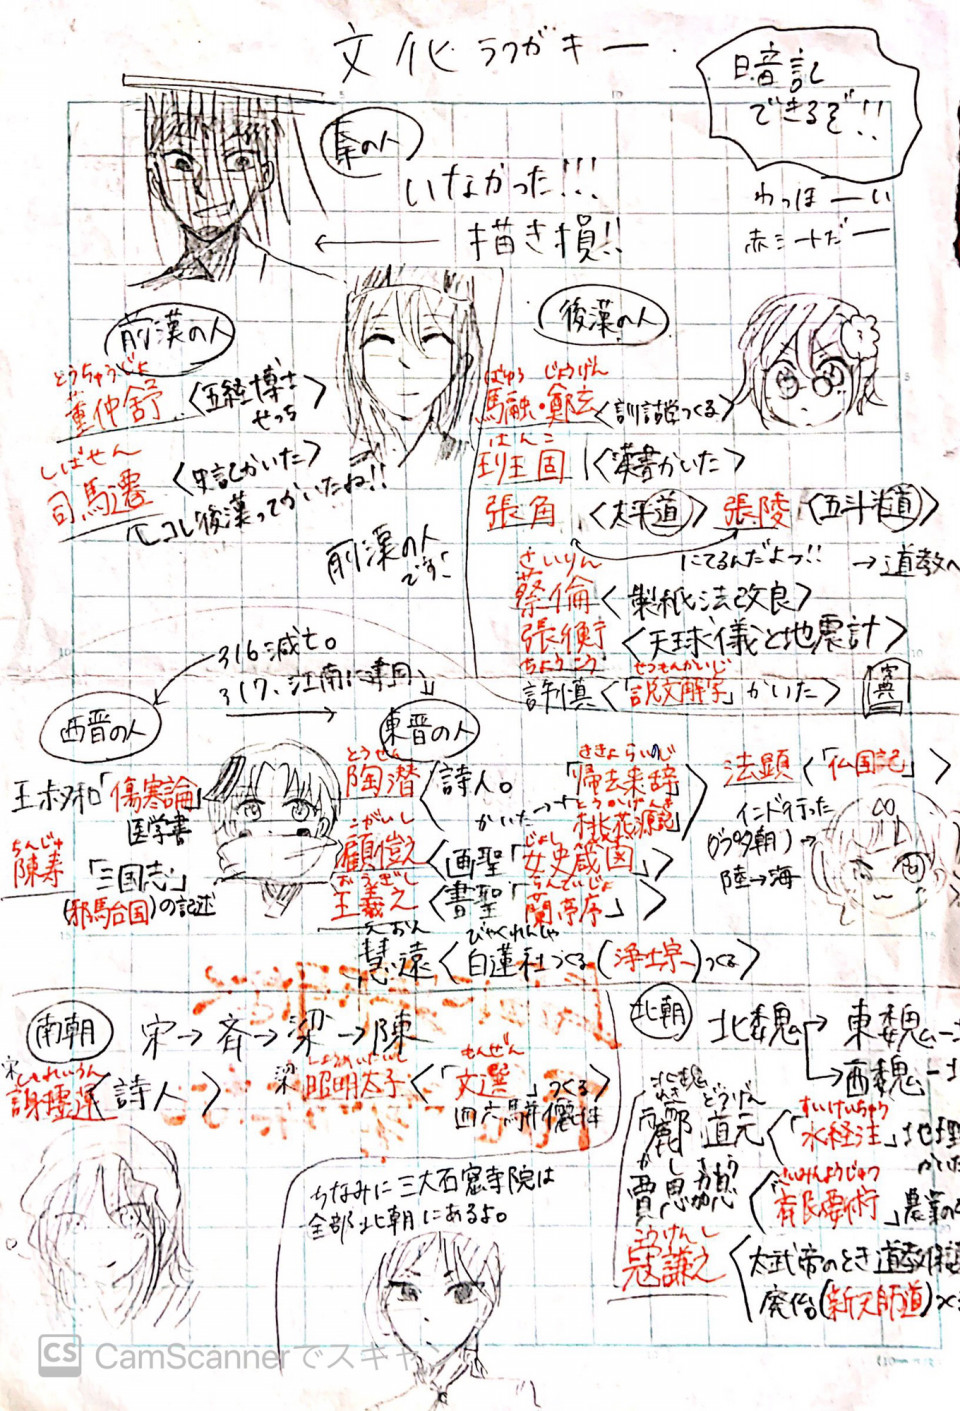 文化ラクガキー
暗記
できるぞ!!
わっほーい
赤シートだー
秦の人
いなかった!!!
描き損!!
前漢の人
とうちゅうじょ
董仲舒〈五経博士
せっち〉
しばせん
司馬遷〈史記かいた〉
コレ後漢ってかいたね!!
前漢の人
です!
後漢の人
ばゆう じょうげん
馬融・鄭玄〈訓詁学つくる〉
はんこ
班固〈漢書かいた〉
張角〈太平道〉張陵〈五斗米道〉
にてるんだよっ!! →道教へ
さいりん
蔡倫〈製紙法改良〉
張衡〈天球儀と地震計〉
ちょうこう
せつもんかいじ
許慎〈「説文解字」かいた〉
字典
316滅亡。
317、江南に建国
西晋の人
東晋の人
王叔和「傷寒論」
医学書
ちんじゅ
陳寿「三国志」
(邪馬台国)の記述
とうせん
陶潜〈詩人。
かいた→
ききょらいのじ
「帰去来辞」
とうかげんき
「桃花源記」〉
こがいし
顧愷之〈画聖「女史箴図」〉
じょし
おうぎし
王羲之〈書聖「蘭亭序」〉
らんていじょ
えおん
慧遠〈白蓮社つくる(浄土宗)つくる〉
びゃくれんしゃ
法顕〈「仏国記」〉
インド行った
(グプタ朝)→
陸→海
南朝
宋→斉→梁→陳
宋
しゃれいうん
謝霊運〈詩人〉
梁
しょうめいたいし
昭明太子〈「文選」つくる
もんぜん
四六駢儷体〉
ちなみに三大石窟寺院は
全部北朝にあるよ。
北朝
北魏→東魏→
→西魏→
北魏
れきどうげん
酈道元〈「水経注」地理
すいけいちゅう
かいた
かしきょう
賈思勰〈「斉民要術」農業の
せいみんようじゅつ
こうけんし
寇謙之〈太武帝のとき道教保護
廃仏(新天師道)
CS CamScannerでスキャン